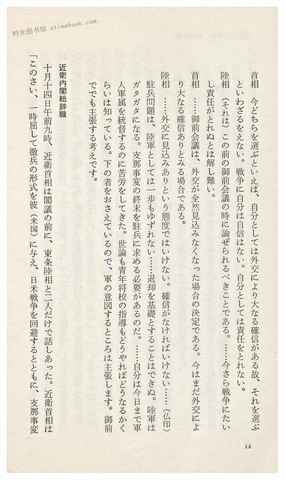 时光图书馆 atimebook.com
首相　今どちらを選ぶといえば、自分としては外交により大なる確信がある故、それを選ぶ
といわざるをえない。戦争に自分は自信はない。自分としては責任をとれない。
陸相　（それは）この前の御前会議の時に論ぜられるべきことである。……今さら戦争にたい
し責任がとれぬとは解し難い。
首相　……御前会議は、外交が全然見込みなくなった場合の決定である。今はまだ外交によ
り大なる確信ありとみる場合である。
陸相　……外交に見込みありという態度ではいけない。確信がなければいけない……（仏印）
駐兵問題は、陸軍としては一歩もゆずれない……退却を基礎とすることはできぬ。陸軍は
ガタガタになる。支那事変の終末を駐兵に求める必要があるのだ。……自分は今日まで軍
人軍属を統督するのに苦労をしてきた。世論も青年将校の指導もどうやればどうなるかく
らいは知っている。下の者をおさえているので、軍の意図するところは主張します。御前
でも主張する考えです。
近衛内閣総辞職
十月十四日午前九時、近衛首相は閣議の前に、東条陸相と二人だけで話しあった。近衛首相は
「このさい、一時屈して撤兵の形式を彼（米国）に与え、日米戦争を回避するとともに、支那事変
14